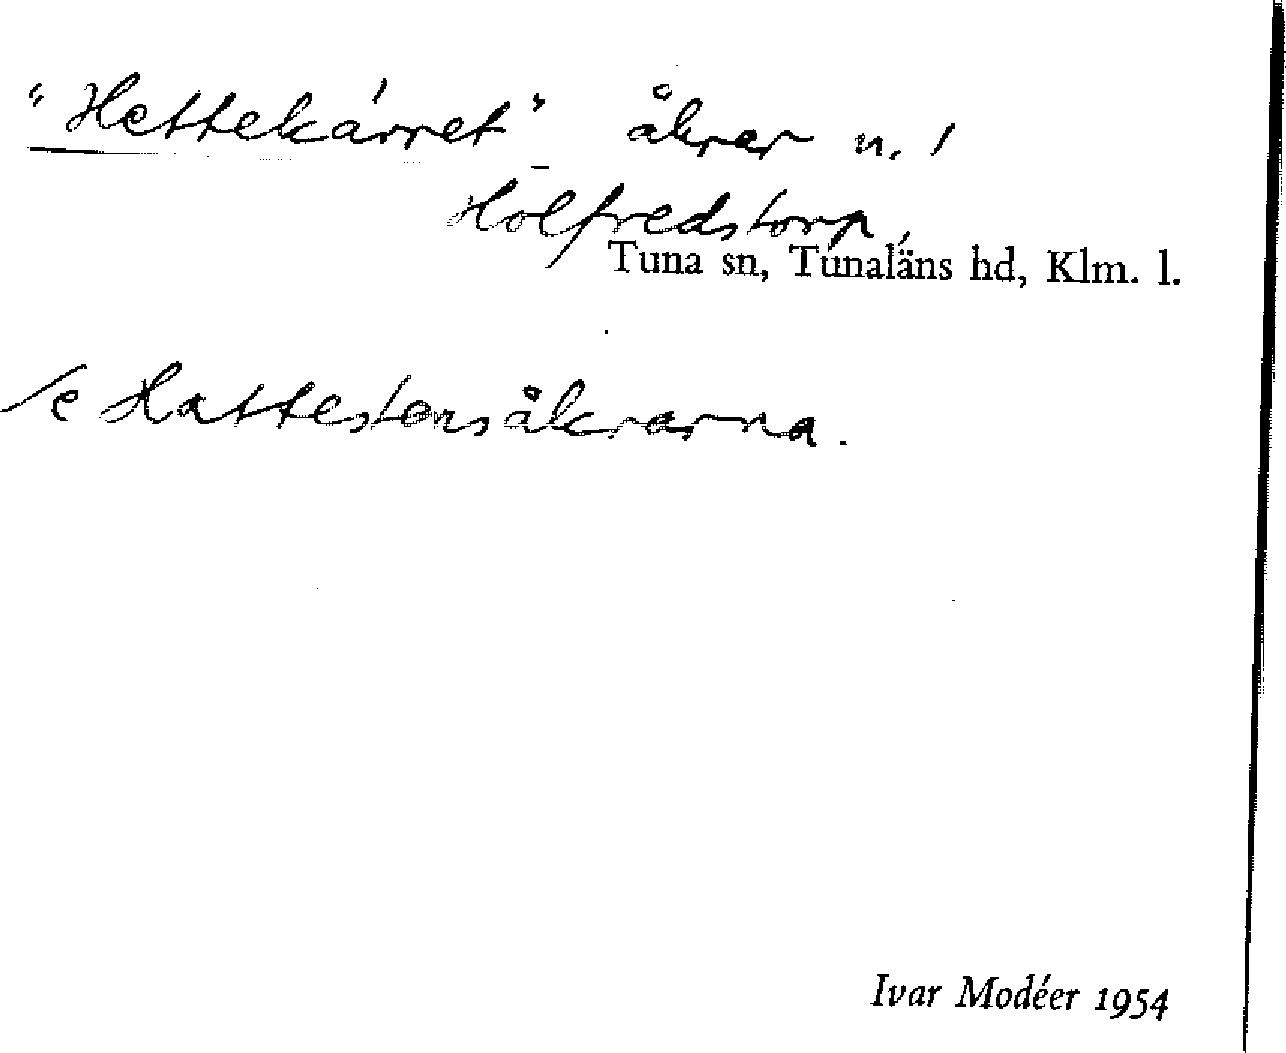 "Hettekärret" åkrar n. /
Hölfredstorp,
Tuna sn, Tunaläns hd, Klm. l.
Se Hattestensåkrarna.
Ivar Modéer 1954